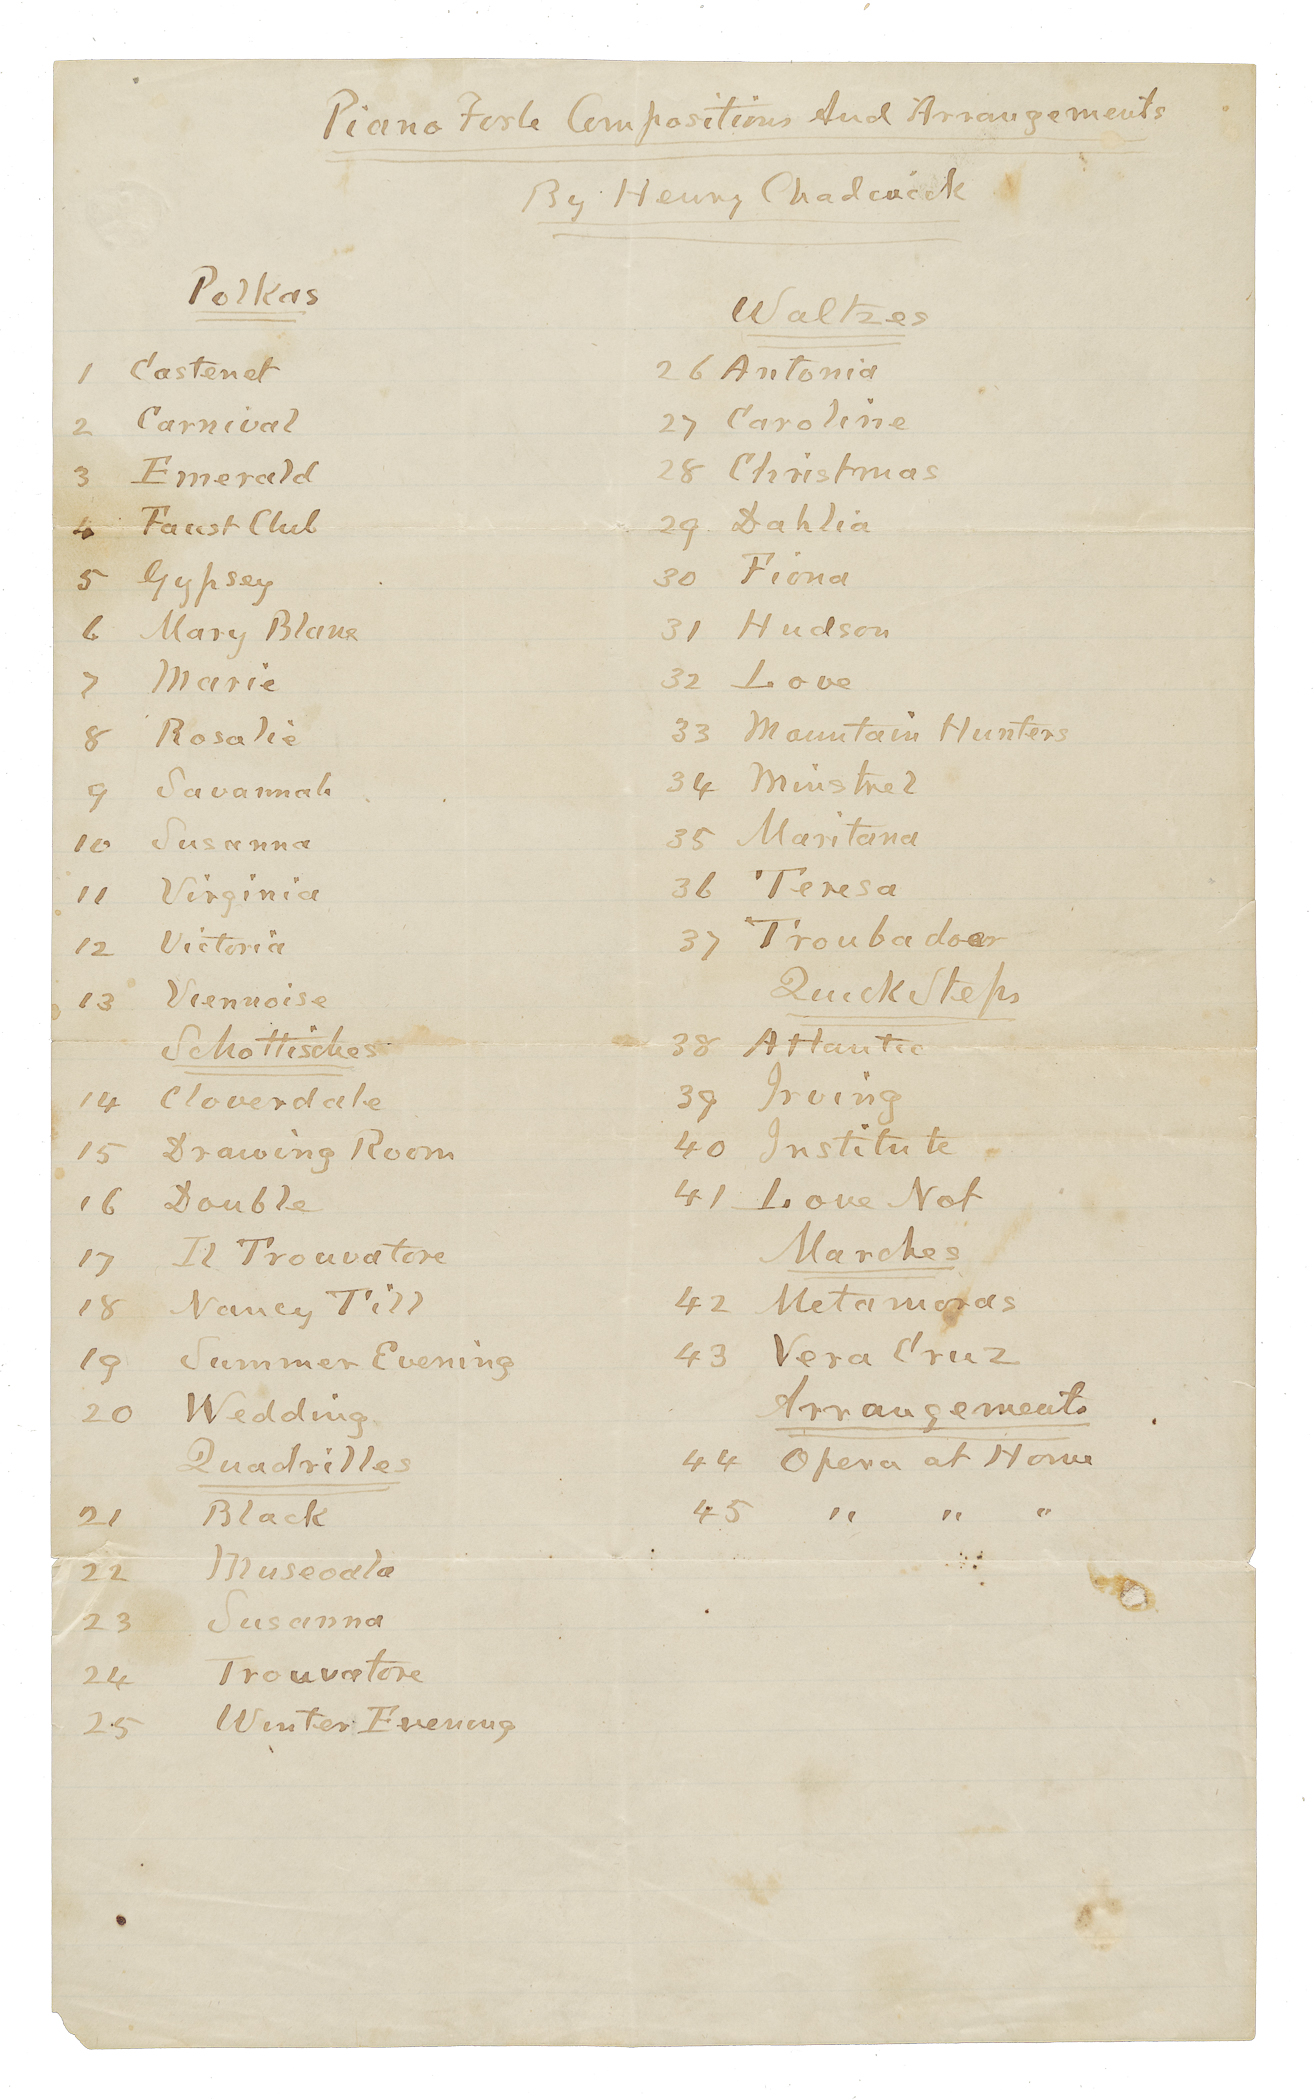 Piano Forte Compositions And Arrangements
By Henry Chadwick
Polkas
1 Castenet
2 Carnival
3 Emerald
4 Faust Club
5 Gypsey
6 Mary Blane
7 Marie
8 Rosalie
9 Savannah
10 Susanna
11 Virginia
12 Victoria
13 Viennoise
Schottisches
14 Cloverdale
15 Drawing Room
16 Double
17 Il Trouvatore
18 Nancy Till
19 Summer Evening
20 Wedding
Quadrilles
21 Black
22
23 Susanna
24 Trouvatore
25 Winter Evening
Waltzes
26 Antonia
27 Caroline
28 Christmas
29 Dahlia
30 Fiona
31 Hudson
32 Love
33 Mountain Hunters
34 Minstrel
35 Maritana
36 Teresa
37 Troubadoer
Quick Steps
38 Atlantic
39 Irving
40 Institute
41 Love Not
Marches
42 Metamoras
43 Vera Cruz
Arrangements
44 Opera at Home
45 " " "